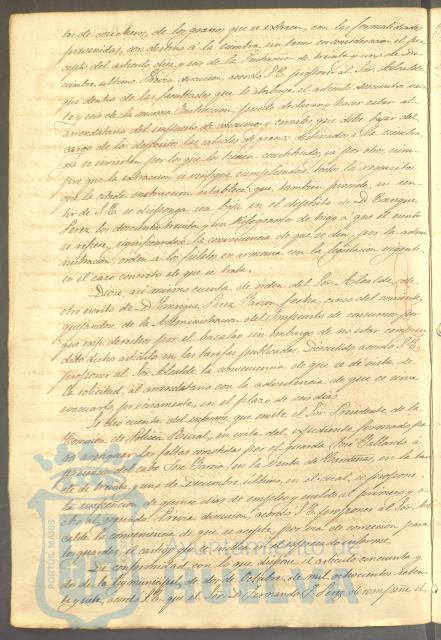 tos de cosecheros, de los granos que se extraen, con las formalidades
prevenidas, con destino á la siembra sin tener en consideracion el pre-
cepto del artículo diez y seis de la Instruccion de treinta y uno de Di-
ciembre último. Prévia discusion, acordó S. E. proponer al Sor. Alcalde
que dentro de las facultades que le atribuye el artículo doscientos
y uno de la misma Instruccion, puede declarar y hacer saber al
arrendatario del impuesto de consumos y cereales, que debe bajar del
cargo de los depósitos las salidas de granos dedicados á la siembra,
ya se inviertan por los que los tienen constituidos, ya por otros, siem-
pre que la extraccion se verifique cumpliendose todos los requisitos
que la citada instruccion establece: que, tambien procede, en sen-
tir de S. E. se disponga sea baja en el depósito de D. Enrique
Perez los doscientos treinta y un kilógramos de trigo á que el asunto
se refiere, significandose la conveniencia de que se den, por la admi-
nistracion, órden á los fieles en armonía con la legislacion vigente,
en el caso concreto de que se trata.
Dióse, así mismo cuenta, de órden del Sor. Alcalde, de
otro escrito de D. Enrique Perez Garzon, fecha cinco del corriente,
quejandose de la Administracion del Impuesto de consumos por-
que exije derechos por el bacalao sin embargo de no estar compren-
dido dicho artículo en las tarifas publicadas. Discutido, acordó S. E.
proponer al Sor. Alcalde la conveniencia de que se dé vista de
la solicitud, al arrendatario con la advertencia de que se sirva
evacuarlo, precisamente, en el plazo de seis dias.
Se dió cuenta del informe que emite, el Sor. Presidente, de la
Comision de Policía Rural, en vista del expediente formado pa-
ra averiguar las faltas cometidas por el guarda José Gallardo á
presencia del cabo José García, en la Venta de Cardeñas, en la tar-
de de treinta y uno de Diciembre último, en el cual, se propone
la suspension de quince dias de empleo y sueldo al primero y
ocho al segundo. Prévia discusion, acordó S. E. proponer al Sor. Al-
calde la conveniencia de que se acepte, por vía de correccion para
los guardas, el castigo que se indica en el expresado informe.
De conformidad con lo que dispone el artículo cincuenta y
dos de la ley municipal, de dos de Octubre de mil ochocientos seten-
ta y siete, acordó S. E. que el Sor. D. Fernando S. Perez desempeñe el,
Ayuntamiento de
HUELVA
PORTUS MARIS